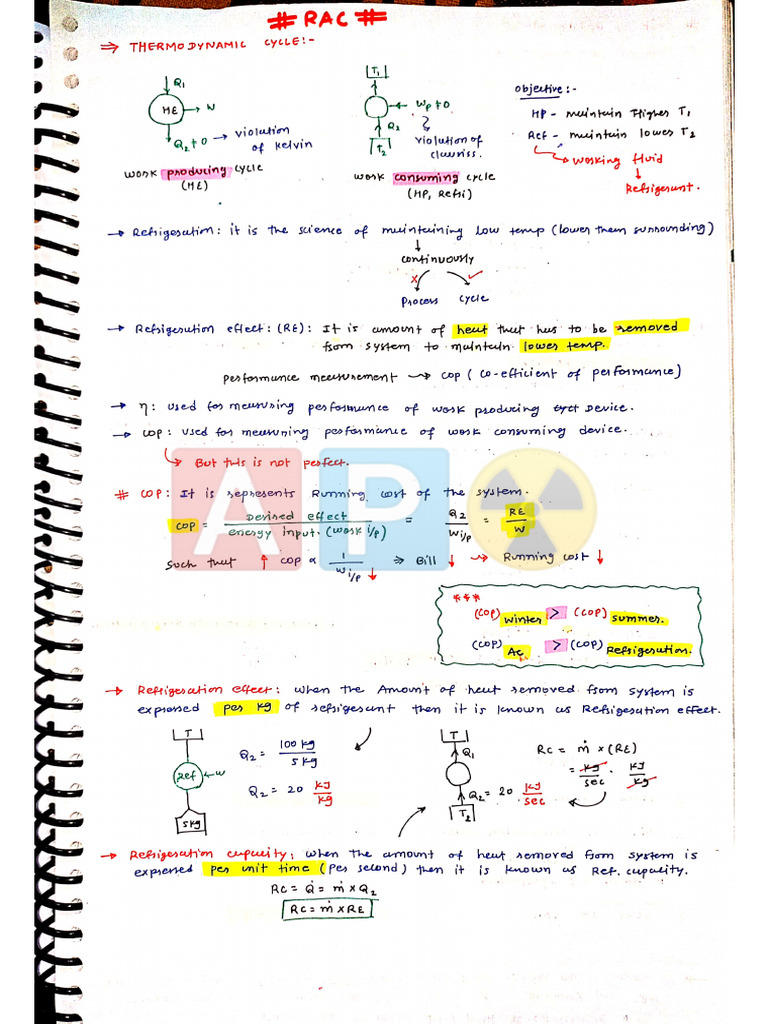 # RAC #
⇒ THERMODYNAMIC CYCLE:-
Q1
HE → W
Q2 ≠ 0 → violation of kelvin
work producing cycle
(HE)
T1
← Wp ≠ 0
Q2
violation of clausiss.
T2
work consuming cycle
(HP, Refri)
objective:-
HP - maintain Higher T1
Ref - maintain lower T2
→ working fluid
↓
Refrigerant.
→ Refrigeration: it is the science of maintaining low temp (lower them surrounding)
↓
continuously
x ✓
Process cycle
→ Refrigeration effect: (RE): It is amount of heat that has to be removed
from system to maintain lower temp.
performance measurement → COP (co-efficient of performance)
→ η: used for measuring performance of work producing Device.
→ COP: used for measuring performance of work consuming device.
→ But this is not perfect.
# COP: It is represents Running cost of the system.
COP = Desired effect / energy input. (work i/p) = Q2 / Wi/p = RE / W
Such that ↑ COP ∝ 1 / Wi/p ↓ ⇒ Bill ↓ → Running cost ↓
***
(COP) winter > (COP) summer.
(COP) AC > (COP) Refrigeration.
→ Refrigeration effect: when the Amount of heat removed from system is
expressed per kg of refrigerant then it is known as Refrigeration effect.
T
Ref ← W
5kg
Q2 = 100 kg / 5 kg
Q2 = 20 kJ / kg
T
Q1
Q2 = 20 kJ / sec
T2
RC = ṁ × (RE)
= kg / sec . kJ / kg
→ Refrigeration capacity: when the amount of heat removed from system is
expressed per unit time (per second) then it is known as Ref. capacity.
RC = Q̇ = ṁ × Q2
RC = ṁ × RE
AP